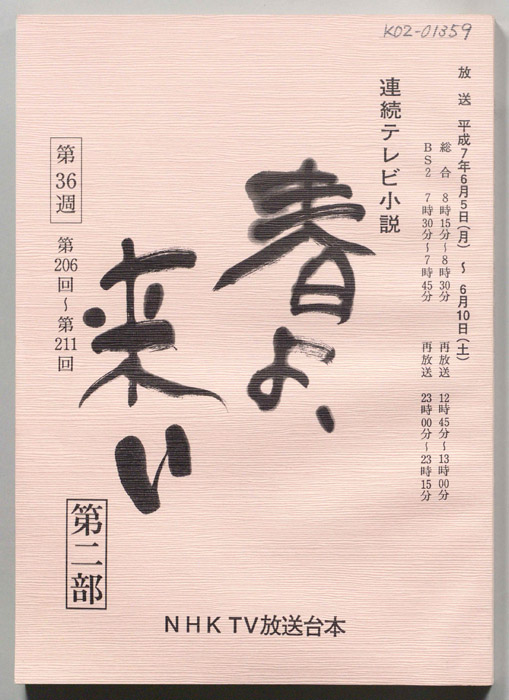 K02-01359
放送 平成7年6月5日(月)～6月10日(土)
総合 8時15分～8時30分 再放送 12時45分～13時00分
BS2 7時30分～7時45分 再放送 23時00分～23時15分
連続テレビ小説
春よ、
来い
第36週
第206回～第211回
第二部
NHK TV放送台本